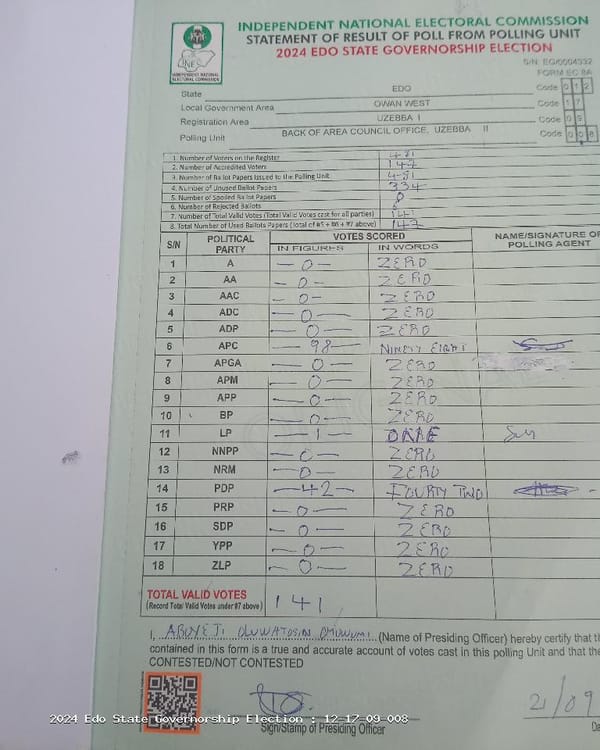 INDEPENDENT NATIONAL ELECTORAL COMMISSION
STATEMENT OF RESULT OF POLL FROM POLLING UNIT
2024 EDO STATE GOVERNORSHIP ELECTION
S/N: EG/0004332
FORM EC 8A
INEC
INDEPENDENT NATIONAL ELECTORAL COMMISSION
State EDO Code 0 1 2
Local Government Area OWAN WEST Code 1 7
Registration Area UZEBBA I Code 0 9
Polling Unit BACK OF AREA COUNCIL OFFICE, UZEBBA II Code 0 0 8
1. Number of Voters on the Register 481
2. Number of Accredited Voters 147
3. Number of Ballot Papers Issued to the Polling Unit 481
4. Number of Unused Ballot Papers 334
5. Number of Spoiled Ballot Papers 0
6. Number of Rejected Ballots
7. Number of Total Valid Votes (Total Valid Votes cast for all parties) 141
8. Total Number of Used Ballots Papers (Total of #5 + #6 + #7 above) 147
S/N POLITICAL PARTY VOTES SCORED NAME/SIGNATURE OF POLLING AGENT
IN FIGURES IN WORDS
1 A -0- ZERO
2 AA -0- ZERO
3 AAC -0- ZERO
4 ADC -0- ZERO
5 ADP -0- ZERO
6 APC -98- NINETY EIGHT
7 APGA -0- ZERO
8 APM -0- ZERO
9 APP -0- ZERO
10 BP -0- ZERO
11 LP -1-
12 NNPP -0- ZERO
13 NRM -0- ZERO
14 PDP -42- FOURTY TWO
15 PRP -0- ZERO
16 SDP -0- ZERO
17 YPP -0- ZERO
18 ZLP -0- ZERO
TOTAL VALID VOTES 141
(Record Total Valid Votes under #7 above)
I, OLUWATOSIN (Name of Presiding Officer) hereby certify that th
contained in this form is a true and accurate account of votes cast in this polling Unit and that the
CONTESTED/NOT CONTESTED
21/09
Sign/Stamp of Presiding Officer Da
2024 Edo State Governorship Election : 12-17-09-008